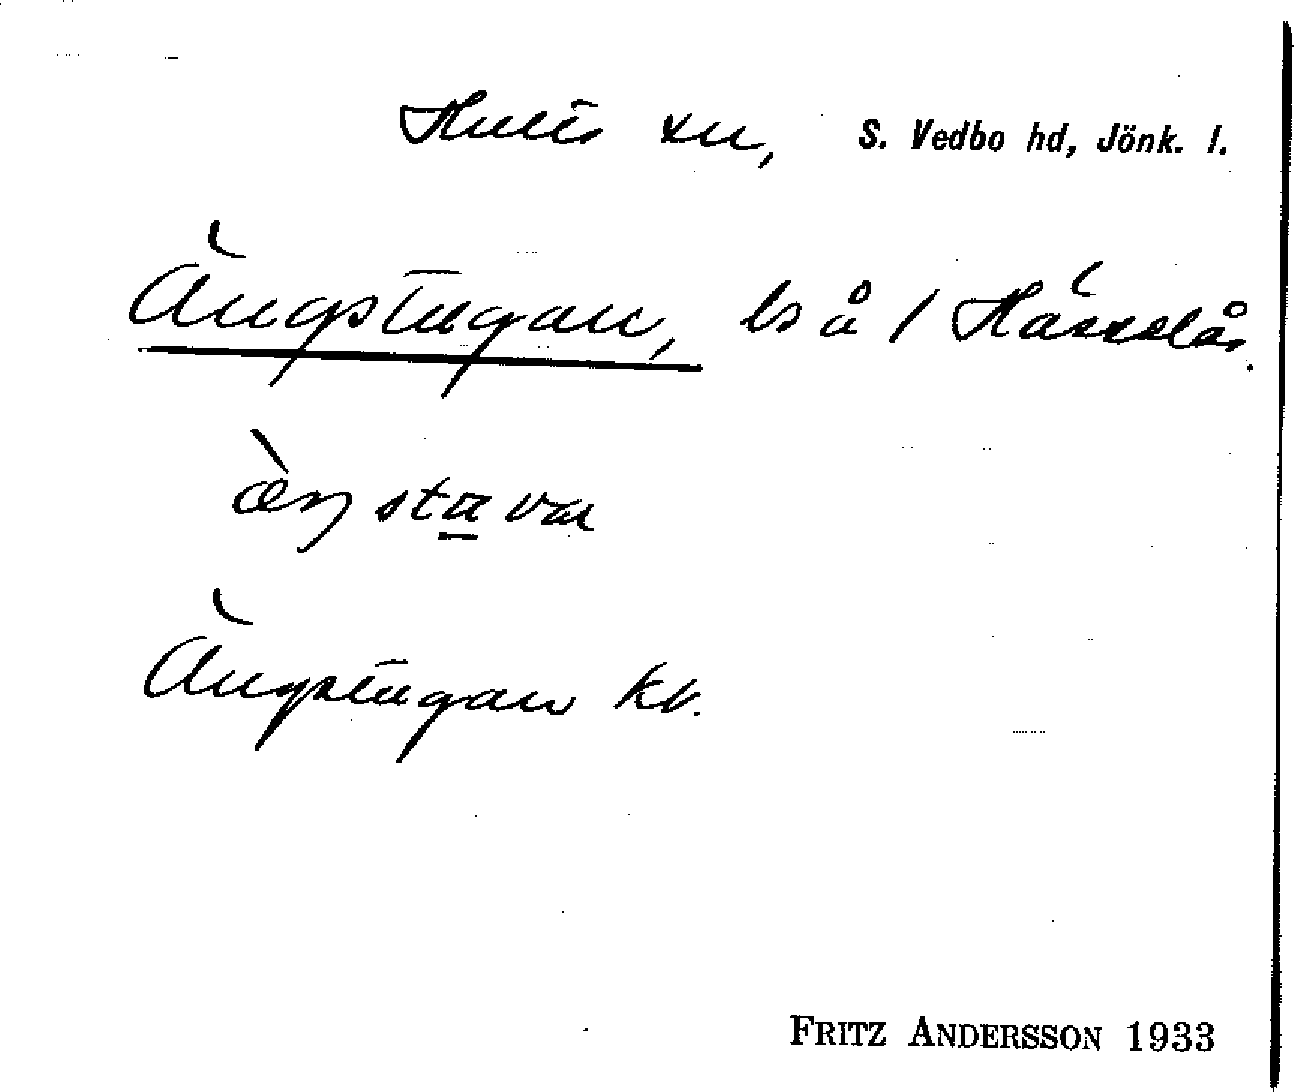 Hults sn, S. Vedbo hd, Jönk. l.
Ängstugan, ls å / Hässelås.
æ̀ŋ sta van
Ängstugan kv.
FRITZ ANDERSSON 1933